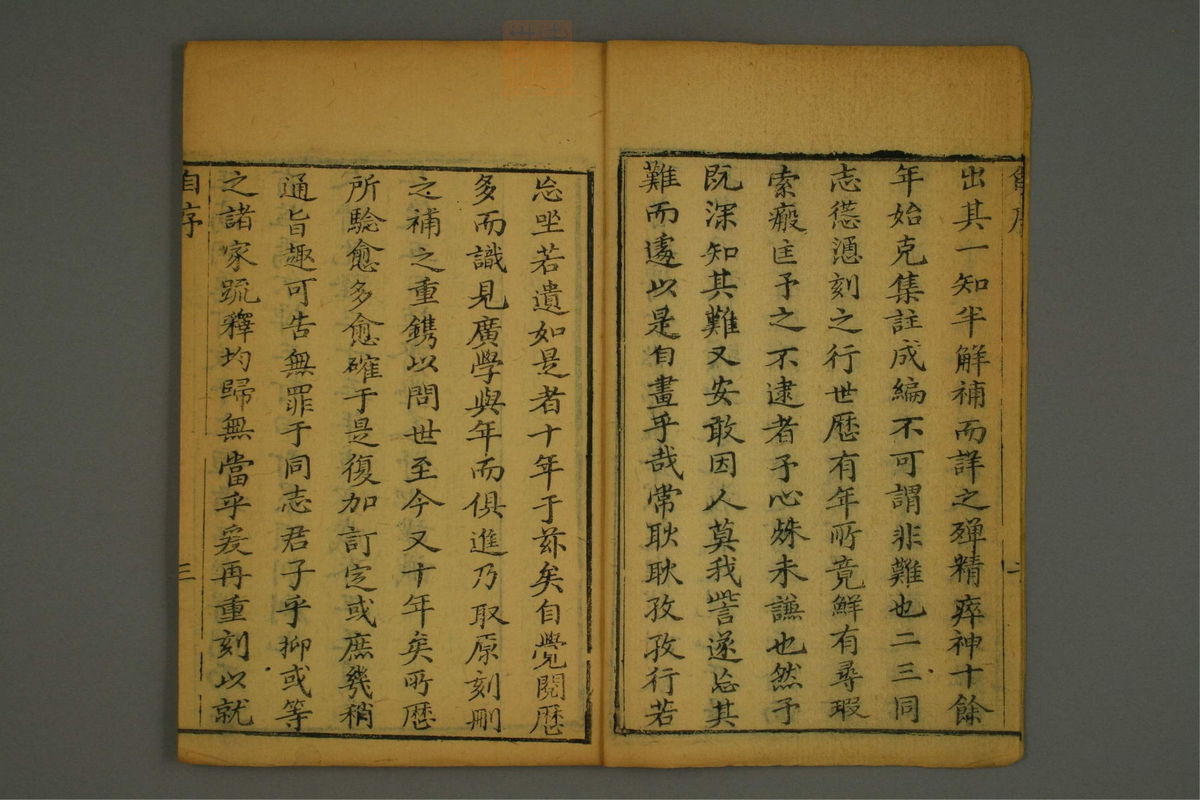 出其一知半解補而詳之殫精瘁神十餘
年始克集註成編不可謂非難也二三同
志慫恿刻之行世歷有年所竟鮮有尋瑕
索瘢匡予之不逮者予心殊未謙也然予
既深知其難又安敢因人莫我訾遂忘其
難而遽以是自畫乎哉常耿耿孜孜行若
忘坐若遺如是者十年于茲矣自覺閱歷
多而識見廣學與年而俱進乃取原刻刪
之補之重鐫以問世至今又十年矣所歷
所驗愈多愈確于是復加訂定或庶幾稍
通旨趣可告無罪于同志君子乎抑或等
之諸家疏釋均歸無當乎爰再重刻以就
自序
三